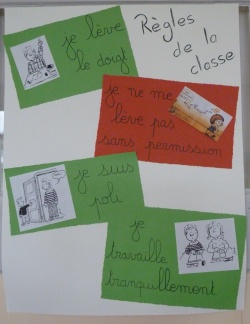 Règles
de la
classe
je lève
le doigt
je ne me
lève pas
sans permission
je suis
poli
je
travaille
tranquillement